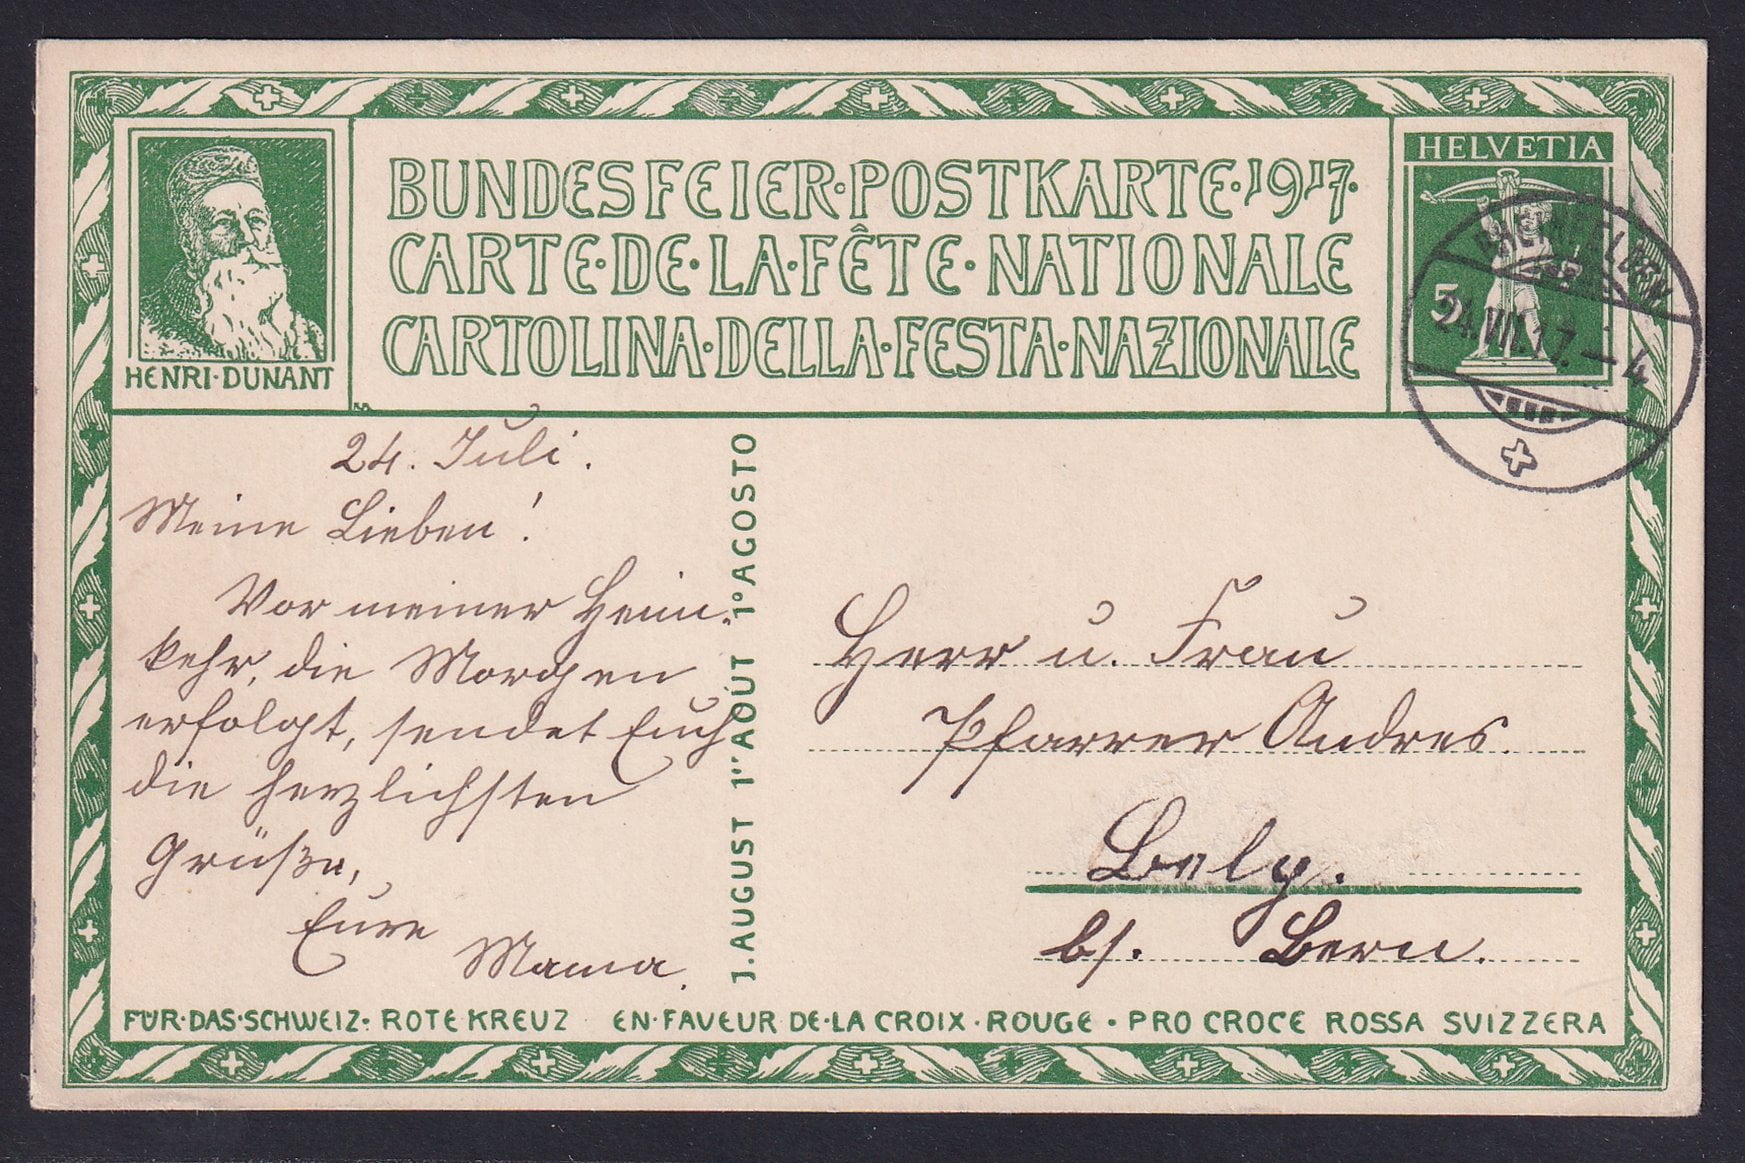 BUNDESFEIER·POSTKARTE·1917·
CARTE·DE·LA·FÊTE·NATIONALE
CARTOLINA·DELLA·FESTA·NAZIONALE
HENRI·DUNANT
HELVETIA
5
RHEINFELDEN
24.VII.17.–4
24. Juli.
Meine Lieben!
Vor meiner Heim-
kehr, die Morgen
erfolgt, sendet Euch
die herzlichsten
Grüße,
Eure
Mama.
1. AUGUST 1er AOÛT 1º AGOSTO
Herr u. Frau
Pfarrer Andres.
Belp.
b/. Bern.
FÜR·DAS·SCHWEIZ·ROTE KREUZ EN·FAVEUR DE·LA CROIX·ROUGE·PRO CROCE ROSSA SVIZZERA